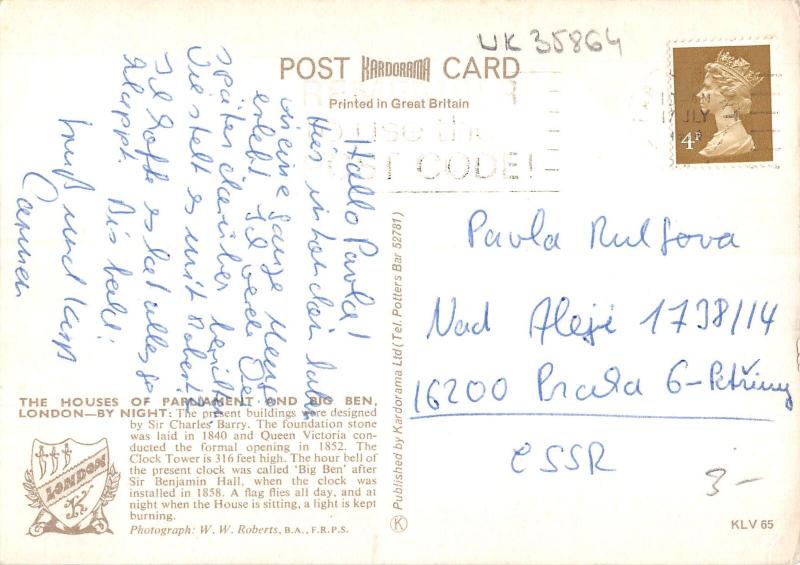 UK 35864
POST KARDORAMA CARD
Printed in Great Britain
REMEMBER
to use the
POST CODE!
JLY
4P
Hallo Pavla!
Hier in London haben
wir eine ganze Menge
erlebt. Ich werde Dir
später darüber berichten.
Wie steht es mit Robert?
Ich hoffe es hat alles ge-
klappt. Bis bald!
Gruß und Kuss
Carmen
Pavla
Nad Alejí 1738/14
16200 Praha 6-Petřiny
ČSSR
3-
THE HOUSES OF PARLIAMENT AND BIG BEN,
LONDON—BY NIGHT: The present buildings were designed
by Sir Charles Barry. The foundation stone
was laid in 1840 and Queen Victoria con-
ducted the formal opening in 1852. The
Clock Tower is 316 feet high. The hour bell of
the present clock was called 'Big Ben' after
Sir Benjamin Hall, when the clock was
installed in 1858. A flag flies all day, and at
night when the House is sitting, a light is kept
burning.
Photograph: W. W. Roberts, B.A., F.R.P.S.
LONDON
K
Published by Kardorama Ltd (Tel. Potters Bar 52781)
K
KLV 65